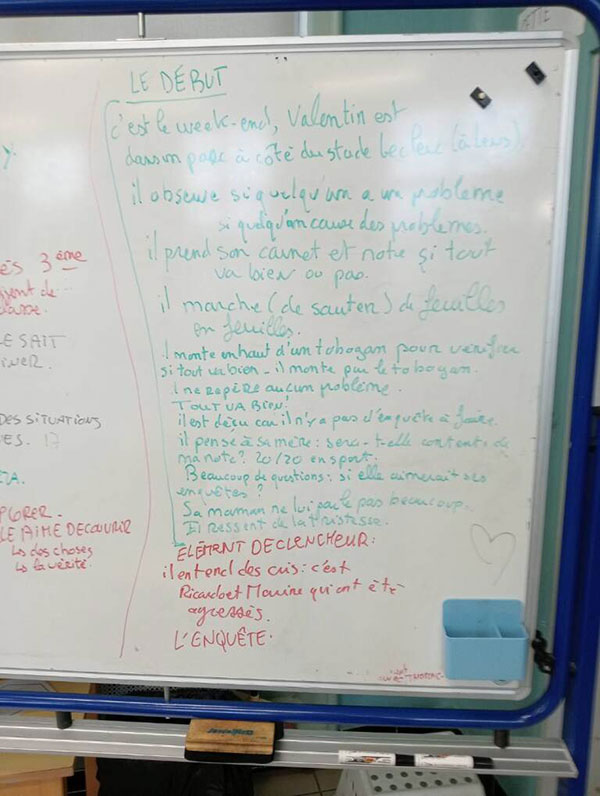 LE DÉBUT
c'est le week-end, Valentin est
dans un parc à côté du stade Leclerc (à Lens).
il observe si quelqu'un a un problème
si quelqu'un cause des problèmes.
il prend son carnet et note si tout
va bien ou pas.
il marche (de sauter) de feuilles
en feuilles.
l monte en haut d'un tobogan pour vérifier
si tout va bien - il monte par le tobogan.
l ne repère aucun problème.
TOUT VA BIEN,
il est déçu car il n'y a pas d'enquête à faire.
il pense à sa mère : sera-t-elle contente de
ma note? 20/20 en sport.
Beaucoup de questions : si elle aimerait ses
enquêtes ?
Sa maman ne lui parle pas beaucoup.
Il ressent de la tristesse.
ÉLÉMENT DECLENCHEUR :
il entend des cris : c'est
Ricardo et Marine qui ont été
agressés.
L'ENQUÊTE.
ès 3ème
LE SAIT
DES SITUATIONS
ES. 17
LE AIME DECOUVRIR
↳ des choses
↳ la vérité.